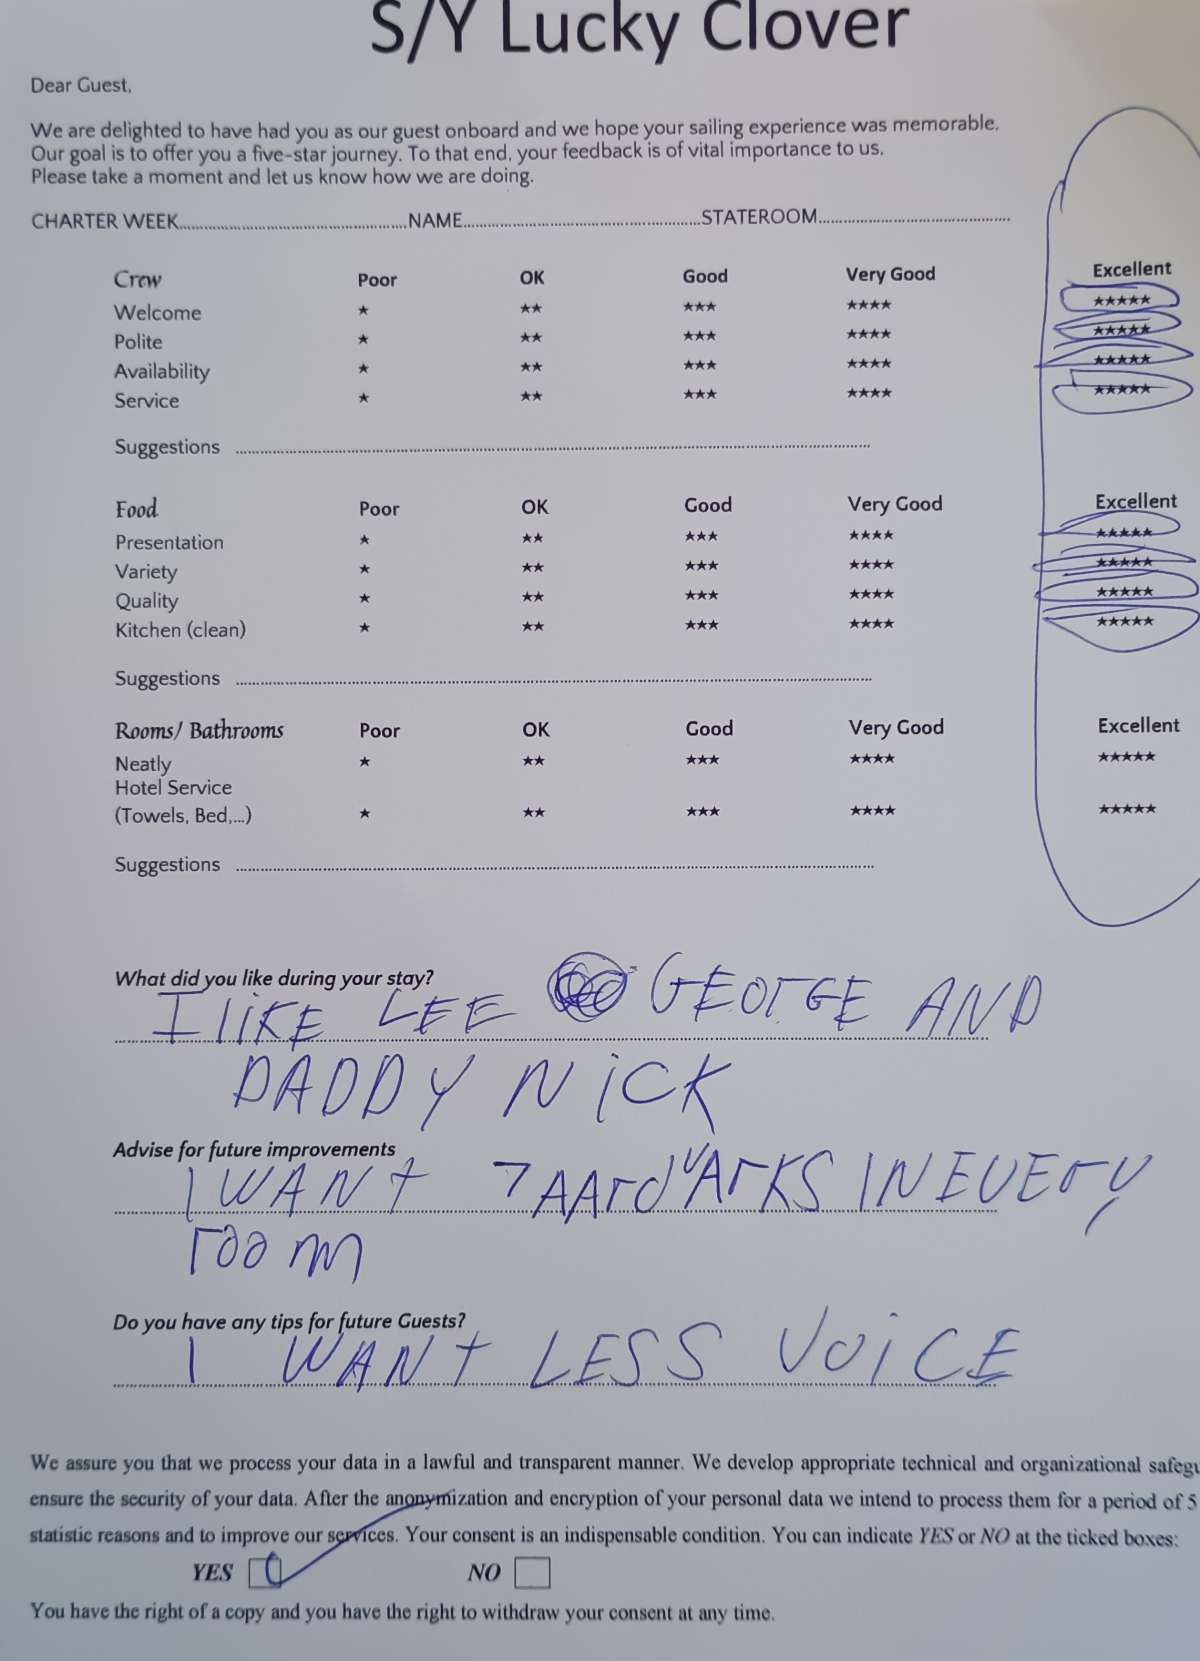 S/Y Lucky Clover
Dear Guest,
We are delighted to have had you as our guest onboard and we hope your sailing experience was memorable.
Our goal is to offer you a five-star journey. To that end, your feedback is of vital importance to us.
Please take a moment and let us know how we are doing.
CHARTER WEEK.......................NAME.......................STATEROOM.......................
Crew Poor OK Good Very Good Excellent
Welcome ★ ★★ ★★★ ★★★★ ★★★★★
Polite ★ ★★ ★★★ ★★★★ ★★★★★
Availability ★ ★★ ★★★ ★★★★ ★★★★★
Service ★ ★★ ★★★ ★★★★ ★★★★★
Suggestions .......................
Food Poor OK Good Very Good Excellent
Presentation ★ ★★ ★★★ ★★★★ ★★★★★
Variety ★ ★★ ★★★ ★★★★ ★★★★★
Quality ★ ★★ ★★★ ★★★★ ★★★★★
Kitchen (clean) ★ ★★ ★★★ ★★★★ ★★★★★
Suggestions .......................
Rooms/ Bathrooms Poor OK Good Very Good Excellent
Neatly ★ ★★ ★★★ ★★★★ ★★★★★
Hotel Service
(Towels, Bed,...) ★ ★★ ★★★ ★★★★ ★★★★★
Suggestions .......................
What did you like during your stay?
I liKE LEE GEOrGE AND
DADDY NiCK
Advise for future improvements
I WANt 7 AArdvArKS IN EVEry
room
Do you have any tips for future Guests?
I WANt LESS VOiCE
We assure you that we process your data in a lawful and transparent manner. We develop appropriate technical and organizational safegu
ensure the security of your data. After the anonymization and encryption of your personal data we intend to process them for a period of 5
statistic reasons and to improve our services. Your consent is an indispensable condition. You can indicate YES or NO at the ticked boxes:
YES NO
You have the right of a copy and you have the right to withdraw your consent at any time.